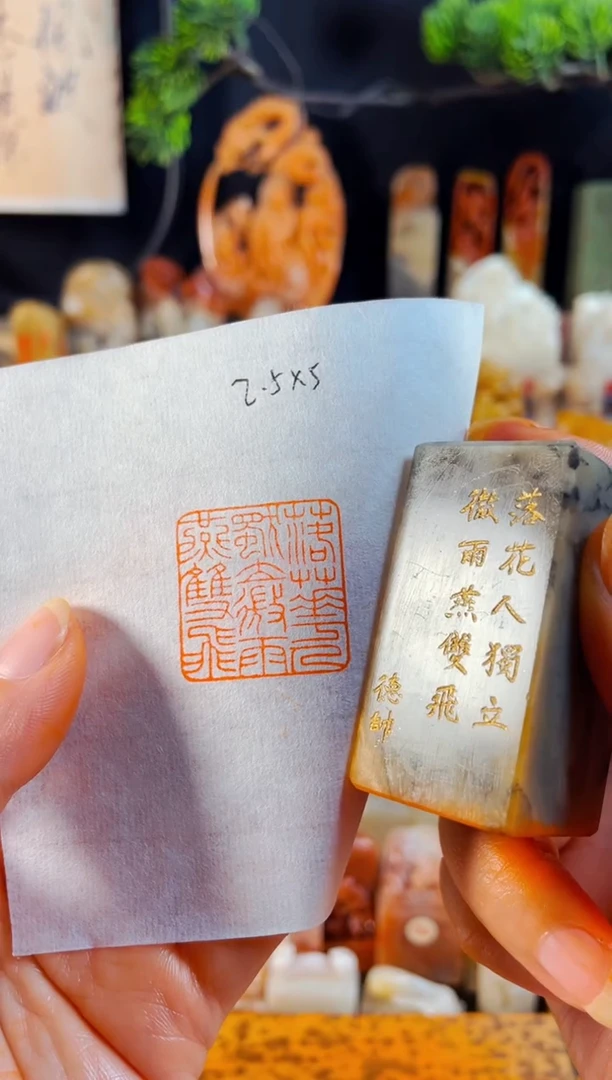 2.5×5
落華人
獨立微雨
燕雙飛
落花人獨立
微雨燕雙飛
德帥